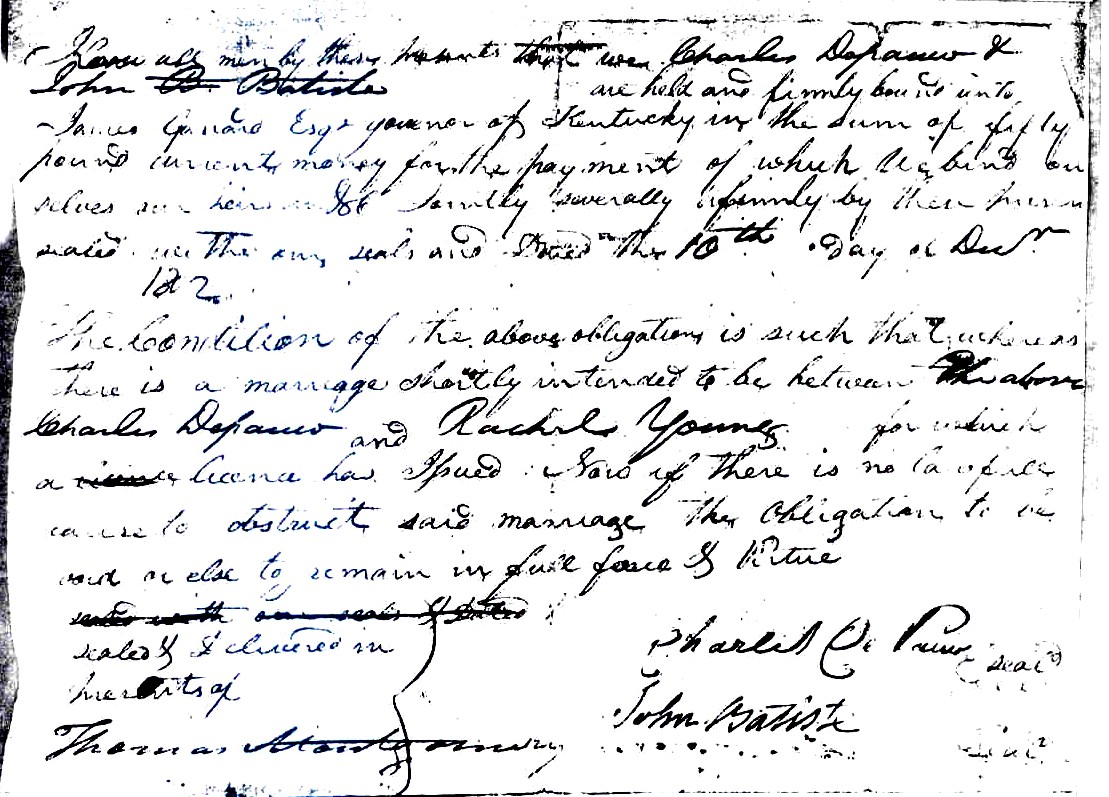 Know all men by these presents that we Charles Depauw &
John B. Batiste are held and firmly bound unto
James Garrard Esqr governor of Kentucky in the sum of fifty
pound current money for the payment of which we bind our
selves our heirs &c Jointly severally & firmly by these presents
sealed with our seals and Dated this 10th Day of Decr
The Condition of the above obligation is such that whereas
there is a marriage shortly intended to be between the above
Charles Depauw and Rachel Young for which
a licence has Issued Now if there is no lawfull
cause to obstruct said marriage the obligation to be
void or else to remain in full force & Virtue
sealed with our seals & dated
sealed & delivered in
presents of
Charles De Pauw seal
John Batiste seal
Thomas Montgomery